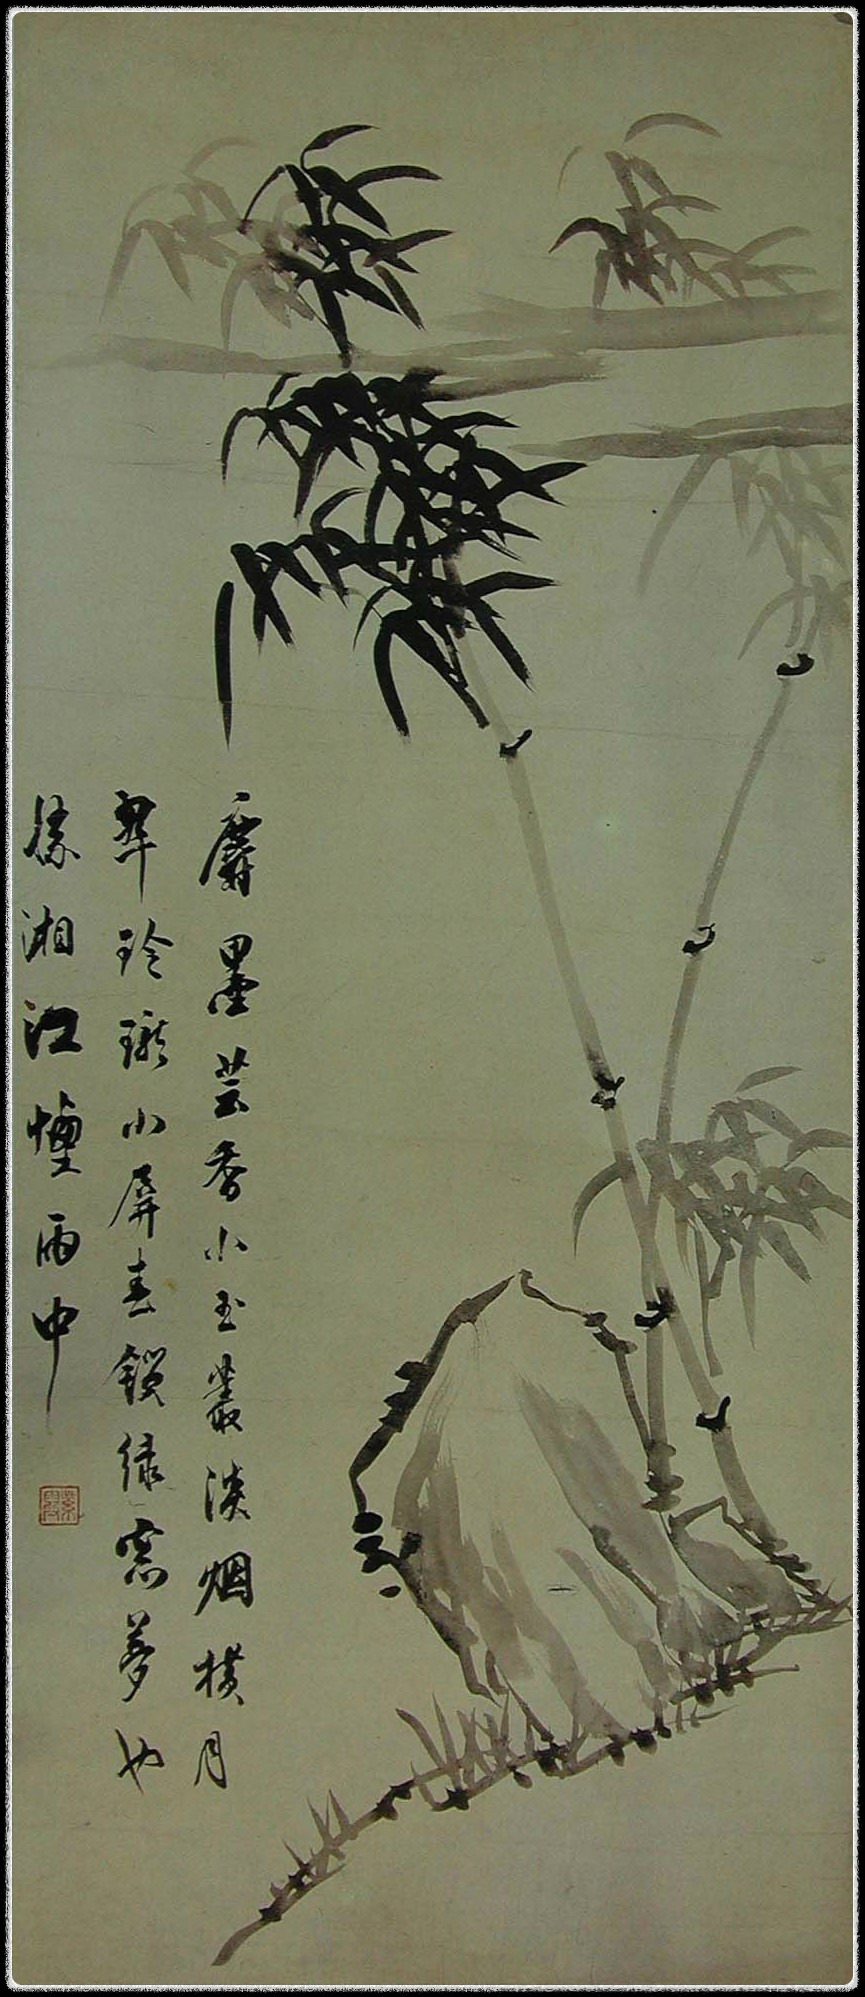 麝墨芸香小玉叢淡烟橫月
翠玲瓏小屏春鎖綠窓夢也
湘江煙雨中